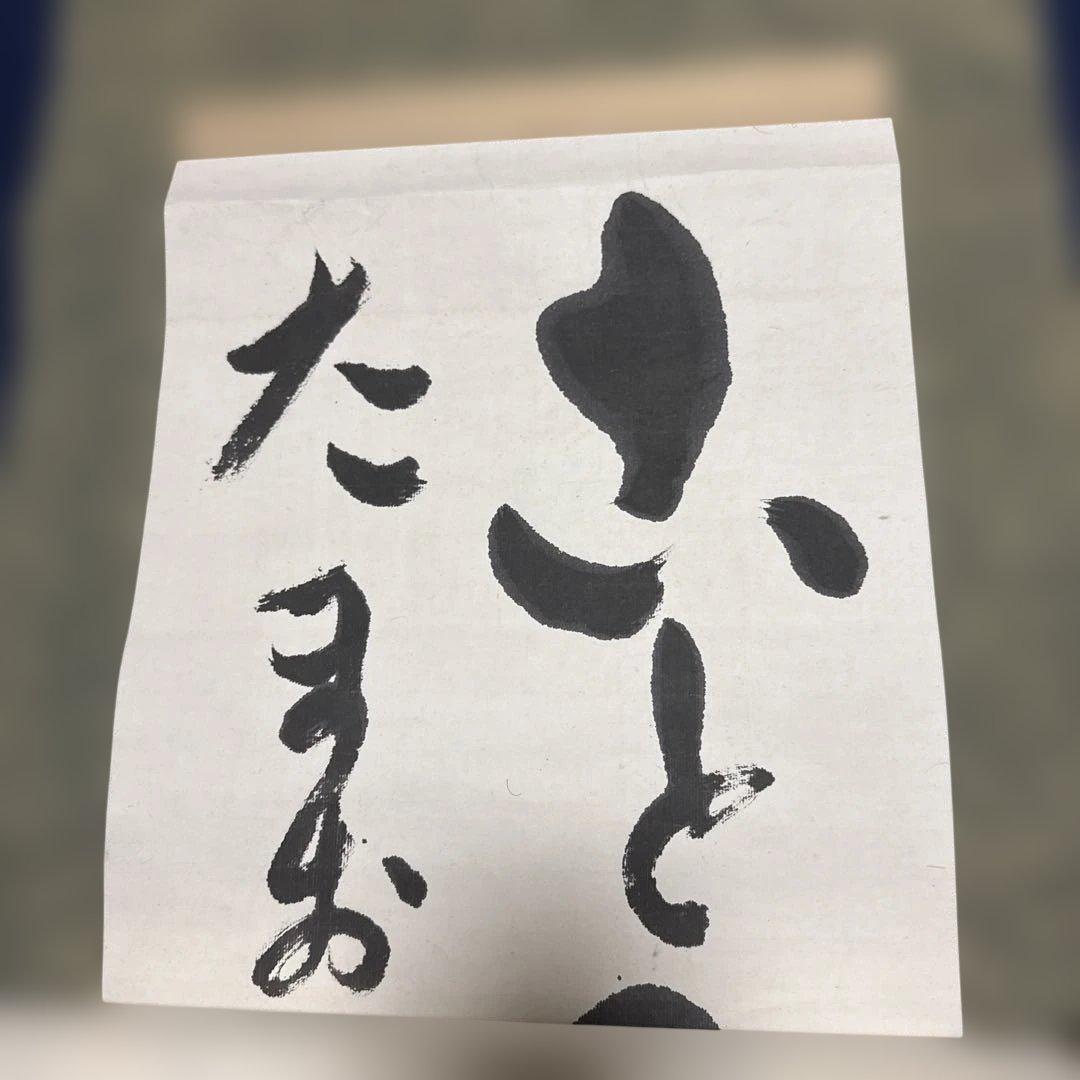 ふと
たまお